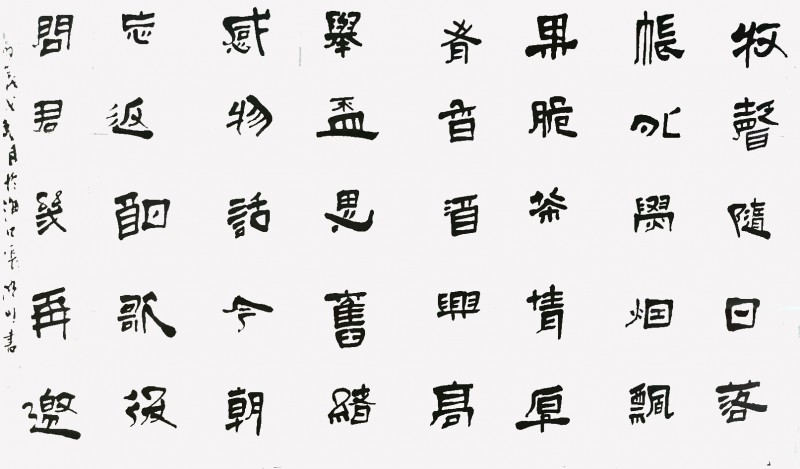 牧聲隨日落
帳外烟飄
果脆茶情厚
肴香酒興高
舉盃思舊緒
感物話今朝
忘返酣歌後
問君幾再邀
月於海口書